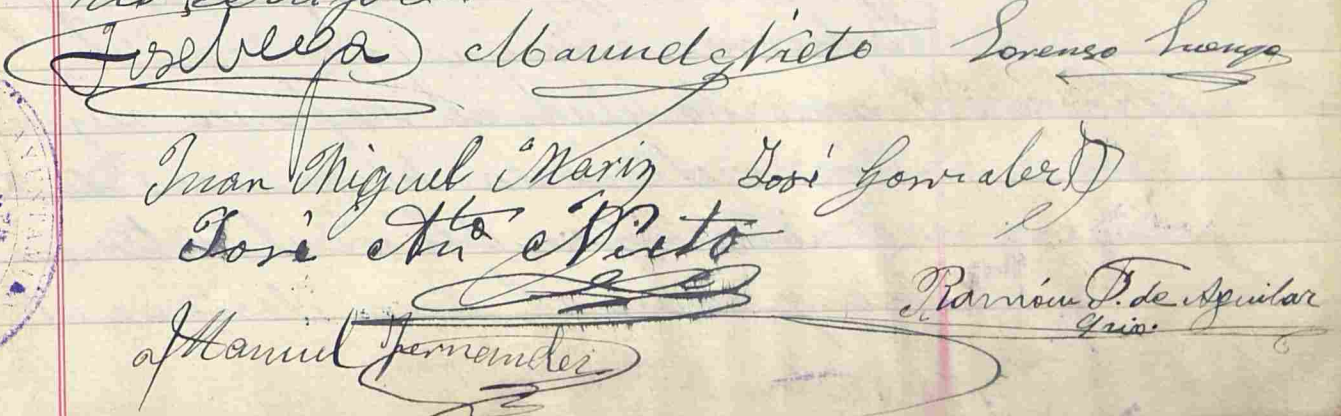 José Vega Manuel Nieto Lorenzo Luengo
Juan Miguel Marin José Gonzalez
José Antº Nieto
Ramón P. de Aguilar
Srio.
Manuel Fernandez